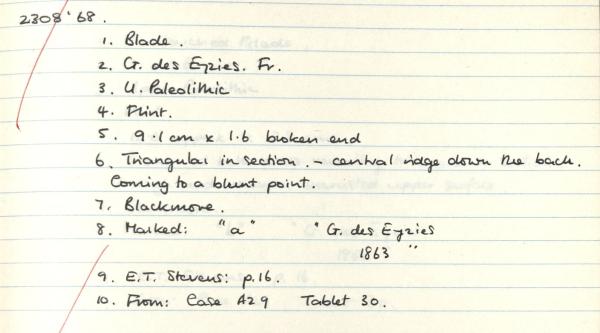 2308'68.
1. Blade.
2. G. des Eyzies. Fr.
3. U. Paleolithic
4. Flint.
5. 9.1cm x 1.6 broken end
6. Triangular in section. - central ridge down the back.
Coming to a blunt point.
7. Blackmore.
8. Marked: "a" "G. des Eyzies
1863"
9. E.T. Stevens: p.16.
10. From: Case A29 Tablet 30.